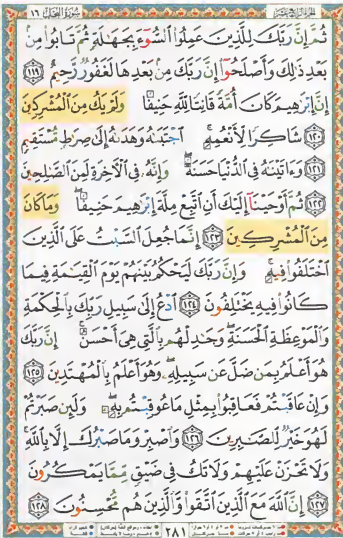 سُورَةُ النَّحْلِ ١٦
ثُمَّ إِنَّ رَبَّكَ لِلَّذِينَ عَمِلُوا۟ ٱلسُّوٓءَ بِجَهَـٰلَةٍ ثُمَّ تَابُوا۟ مِنۢ
بَعْدِ ذَٰلِكَ وَأَصْلَحُوٓا۟ إِنَّ رَبَّكَ مِنۢ بَعْدِهَا لَغَفُورٌ رَّحِيمٌ ١١٩
إِنَّ إِبْرَٰهِيمَ كَانَ أُمَّةً قَانِتًا لِّلَّهِ حَنِيفًا وَلَمْ يَكُ مِنَ ٱلْمُشْرِكِينَ
١٢٠ شَاكِرًا لِّأَنْعُمِهِ ۚ ٱجْتَبَىٰهُ وَهَدَىٰهُ إِلَىٰ صِرَٰطٍ مُّسْتَقِيمٍ
١٢١ وَءَاتَيْنَـٰهُ فِى ٱلدُّنْيَا حَسَنَةً ۖ وَإِنَّهُۥ فِى ٱلْـَٔاخِرَةِ لَمِنَ ٱلصَّـٰلِحِينَ
١٢٢ ثُمَّ أَوْحَيْنَآ إِلَيْكَ أَنِ ٱتَّبِعْ مِلَّةَ إِبْرَٰهِيمَ حَنِيفًا ۖ وَمَا كَانَ
مِنَ ٱلْمُشْرِكِينَ ١٢٣ إِنَّمَا جُعِلَ ٱلسَّبْتُ عَلَى ٱلَّذِينَ
ٱخْتَلَفُوا۟ فِيهِ ۚ وَإِنَّ رَبَّكَ لَيَحْكُمُ بَيْنَهُمْ يَوْمَ ٱلْقِيَـٰمَةِ فِيمَا
كَانُوا۟ فِيهِ يَخْتَلِفُونَ ١٢٤ ٱدْعُ إِلَىٰ سَبِيلِ رَبِّكَ بِٱلْحِكْمَةِ
وَٱلْمَوْعِظَةِ ٱلْحَسَنَةِ ۖ وَجَـٰدِلْهُم بِٱلَّتِى هِىَ أَحْسَنُ ۚ إِنَّ رَبَّكَ
هُوَ أَعْلَمُ بِمَن ضَلَّ عَن سَبِيلِهِۦ ۖ وَهُوَ أَعْلَمُ بِٱلْمُهْتَدِينَ ١٢٥
وَإِنْ عَاقَبْتُمْ فَعَاقِبُوا۟ بِمِثْلِ مَا عُوقِبْتُم بِهِۦ ۖ وَلَئِن صَبَرْتُمْ
لَهُوَ خَيْرٌ لِّلصَّـٰبِرِينَ ١٢٦ وَٱصْبِرْ وَمَا صَبْرُكَ إِلَّا بِٱللَّهِ ۚ
وَلَا تَحْزَنْ عَلَيْهِمْ وَلَا تَكُ فِى ضَيْقٍ مِّمَّا يَمْكُرُونَ
١٢٧ إِنَّ ٱللَّهَ مَعَ ٱلَّذِينَ ٱتَّقَوا۟ وَّٱلَّذِينَ هُم مُّحْسِنُونَ ١٢٨
٢٨١